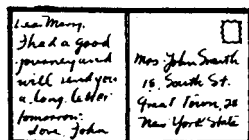 Dear Mary,
I had a good
journey and
will send you
a long letter
tomorrow.
Love, John
Mrs. John Smith
15, South St.
Great Town,
New York State